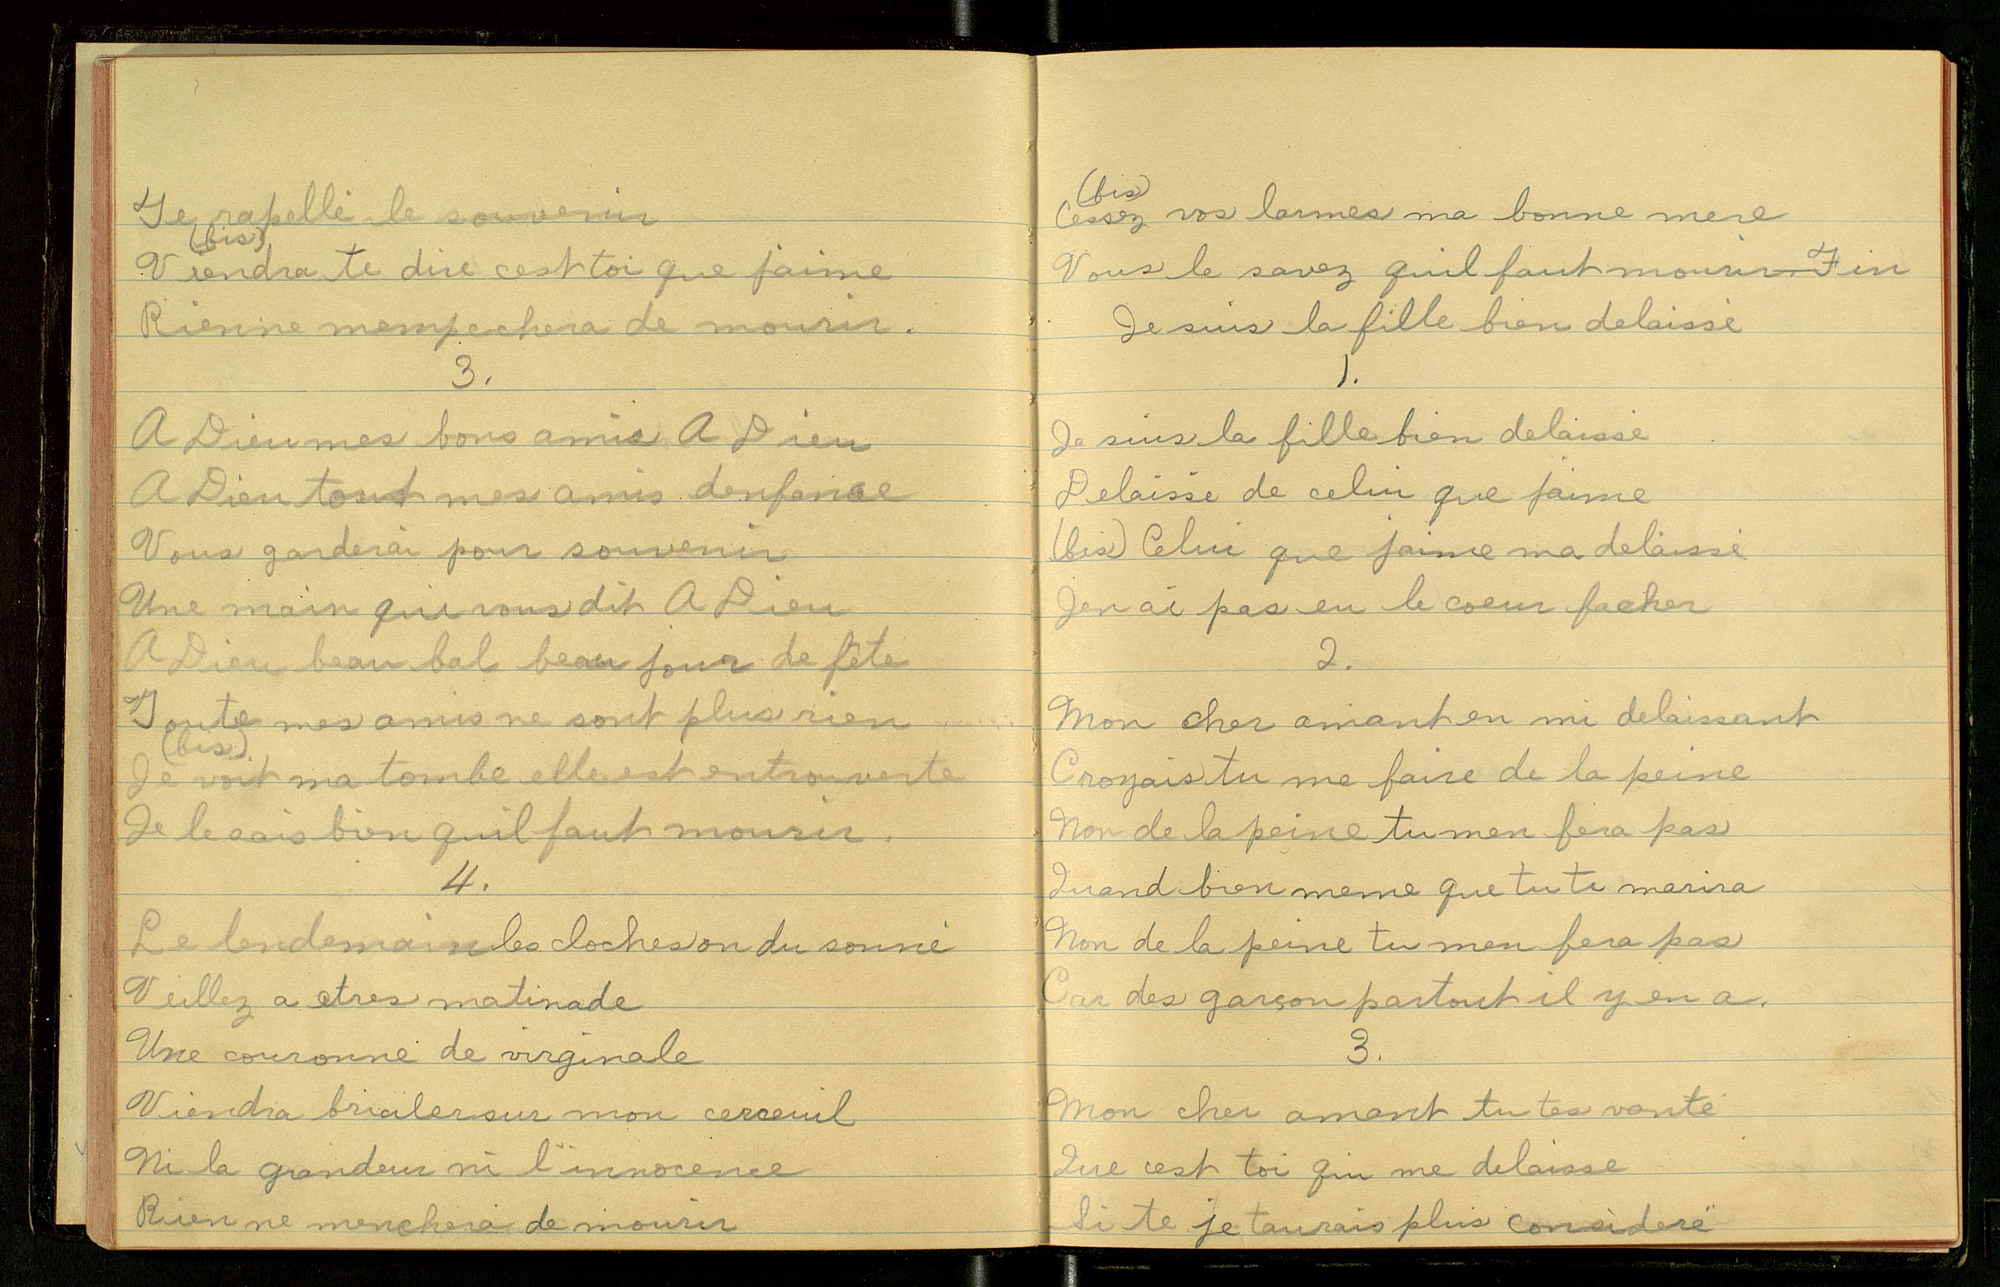 Te rapellé le souvenir
(bis)
Viendra te dire cest toi que jaime
Rienne mempechera de mourir.
3.
A Dieu mes bons amis A Dieu
A Dieu tout mes amis denfance
Vous garderai pour souvenir
Une main qui vous dit A Dieu
A Dieu beau bal beau jour de fête
Toute mes amis ne sont plus rien
(bis)
Je voit ma tombe elle est entrouverte
Je le sais bien quil faut mourir.
4.
Le lendemain les cloches on du sonné
Veillez a etres matinade
Une couronne de virginale
Viendra brialer sur mon cerceuil
Ni la grandeur ni l'innocence
Rien ne menchera de mourir
(bis)
Cessez vos larmes ma bonne mere
Vous le savez quil faut mourir Fin
Je suis la fille bien delaissé
1.
Je suis la fille bien delaissé
Delaissé de celui que jaime
(bis) Celui que jaime ma delaissé
Jen ai pas eu le coeur facher
2.
Mon cher amant en mi delaissant
Croyais tu me faire de la peine
Non de la peine tu men fera pas
Quand bien meme que tu te marira
Non de la peine tu men fera pas
Car des garçon partout il y en a.
3.
Mon cher amant tu tes vanté
Que cest toi qui me delaisse
Si te je taurais plus consideré